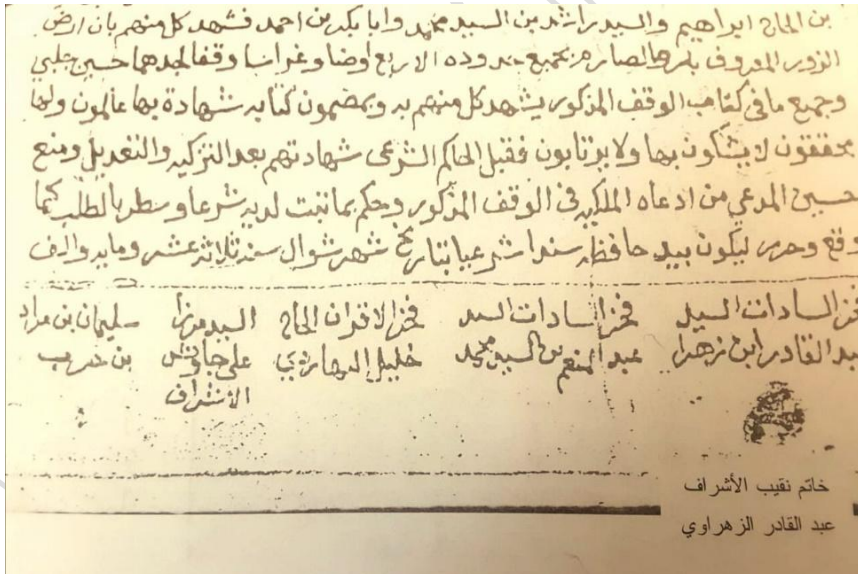 بن الحاج ابراهيم والسيد راشد بن السيد محمد وابا بكر بن احمد فشهد كل منهم بان ارض
الزور المعروف بالمرها الصارم بجميع حدوده الاربع اوضا وغراسا وقفا لجدهما حسين جلبي
وجميع ما في كتاب الوقف المذكور يشهد كل منهم به وبمضمون كتابه شهادة بها عالمون ولها
محققون لا يشكون بها ولا يرتابون فقبل الحاكم الشرعى شهادتهم بعد التزكيه والتعديل ومنع
حسين المدعي من ادعاه الملكيه فى الوقف المذكور وحكم بما ثبت لديه شرعا وسطر بالطلب كما
وقع وحرر ليكون بيد حافظه سندا شرعيا بتاريخ شهر شوال سنه ثلاثه عشر ومايه والف
فخر السادات السيد فخر السادات السيد فخر الاقران الحاج السيد مرزا سليمان بن مراد
عبد القادر ابن زهرا عبد المنعم بن السيد محمد خليل علي بن حرب
الأشراف
خاتم نقيب الأشراف
عبد القادر الزهراوي